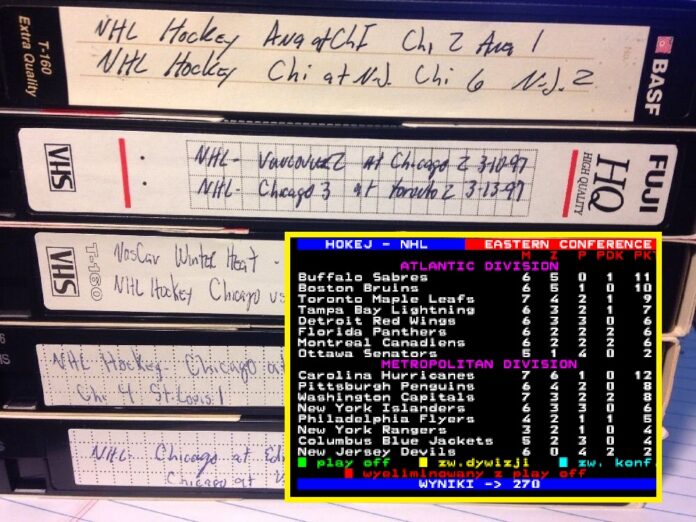 T-160
Extra Quality
NHL Hockey Ana at ChI Chi 2 Ana 1
NHL Hockey Chi at N.J. Chi 6 N.J. 2
BASF
VHS
NHL- Vancouver 2 at Chicago 2 3-10-97
NHL- Chicago 3 at toronto 2 3-13-97
HQ
HIGH QUALITY
FUJI
VHS
T-160
NasCar Winter Heat -
NHL Hockey Chicago vs
NHL Hockey Chicago at
Chi 4 St. Louis 1
NHL- Chicago at Ed
Chicago at
HOKEJ - NHL EASTERN CONFERENCE
M Z P PDK PKT
ATLANTIC DIVISION
Buffalo Sabres 6 5 0 1 11
Boston Bruins 6 5 1 0 10
Toronto Maple Leafs 7 4 2 1 9
Tampa Bay Lightning 6 3 2 1 7
Detroit Red Wings 6 3 3 0 6
Florida Panthers 6 2 2 2 6
Montreal Canadiens 6 2 2 2 6
Ottawa Senators 5 1 4 0 2
METROPOLITAN DIVISION
Carolina Hurricanes 7 6 1 0 12
Pittsburgh Penguins 6 4 2 0 8
Washington Capitals 7 3 2 2 8
New York Islanders 6 3 3 0 6
Philadelphia Flyers 4 2 1 1 5
New York Rangers 3 2 1 0 4
Columbus Blue Jackets 5 2 3 0 4
New Jersey Devils 6 0 4 2 2
play off zw.dywizji zw. konf
wyeliminowany z play off
WYNIKI -> 270